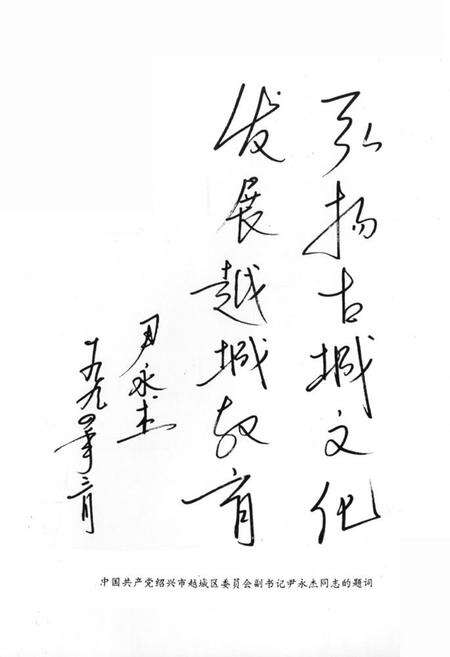 弘扬古城文化
发展越城教育
尹永杰
一九九〇年二月
中国共产党绍兴市越城区委员会副书记尹永杰同志的题词